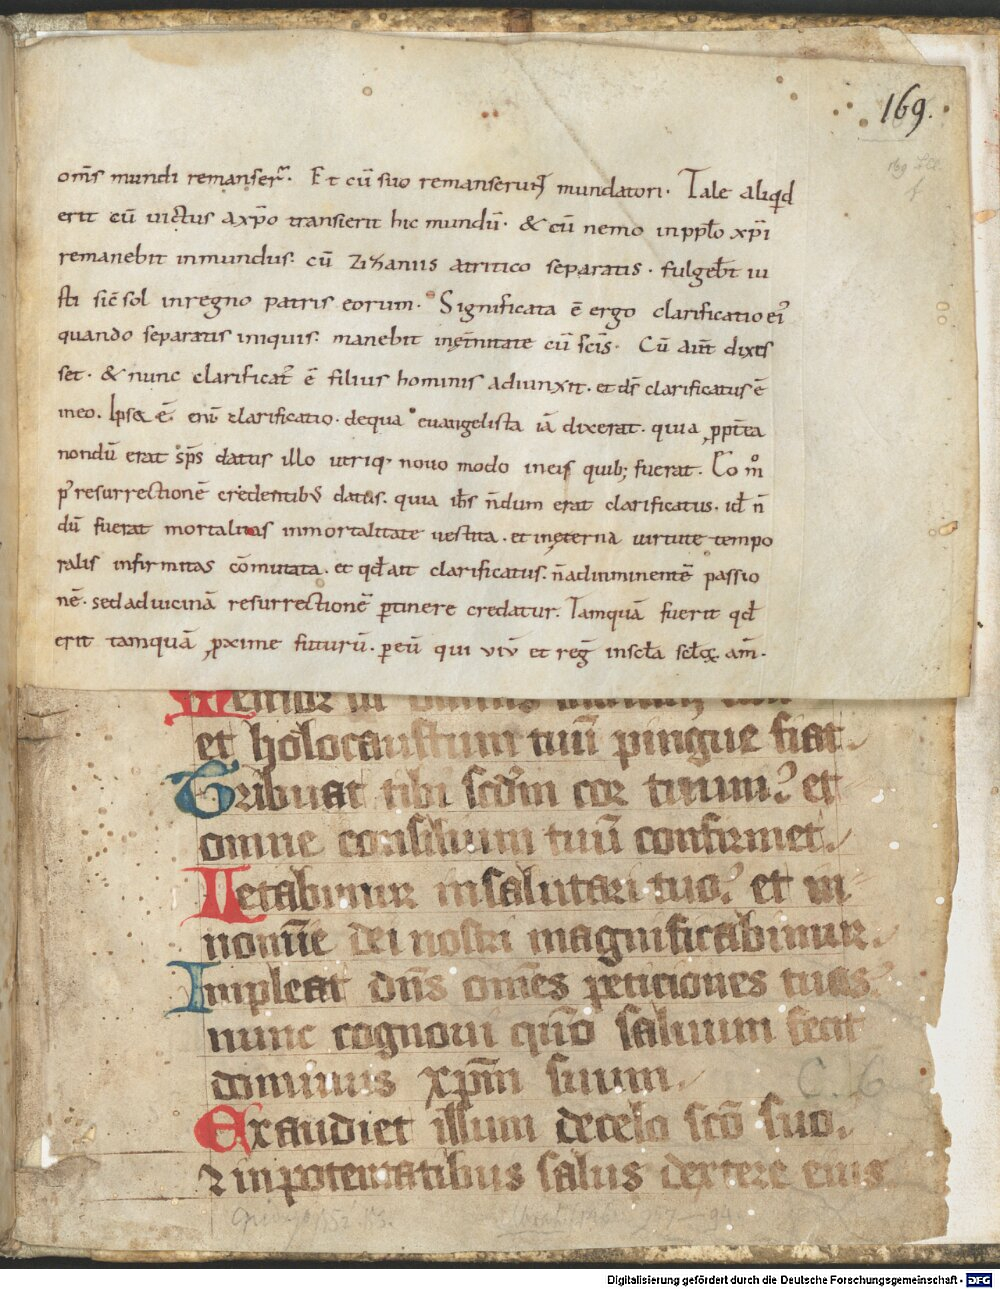 169.
om̄s mundi remanserꝰ. Et cū suo remanserunt mundatori. Tale aliqͥd
erit cū victus axp̄o transierit hic mundꝰ. & cū nemo inppl̄o xp̄i
remanebit inmundus: cū zizaniis atritico separatis. fulgebt̄ iu
sti sic̄ sol inregno patris eorum. Significata ē ergo clarificatio eiꝰ
quando separatis iniquis: manebit inęt̄nitate cū sc̄is. Cū aut̄ dixis
set. & nunc clarificatꝰ ē filius hominis adiunxit. et ds̄ clarificatus ē
ineo. Ipsa ē. enī clarificatio. dequa euangelista iā dixerat. quia ꝓpt̄ea
nondū erat sp̄s datus illo utriqꝫ nouo modo ineis quibꝫ fuerat. Eo mͦ
p̄ resurrectionē credentibꝰ datus. quia ih̄s n̄dum erat clarificatus. id̄ n̄
dū fuerat mortalitas inmortalitate uestita. et inęterna uirtute tempo
ralis infirmitas cōmutata. et qd̄ ait clarificatus. n̄ adimminentē passio
nē. sed aduicinā resurrectionē ꝑtinere credatur. Tamquā fuerit qd̄
erit tamquā ꝓxime futurū. ꝑ eū qui viv̄ et reḡ insecl̄a secl̄oꝝ. am̄.
et holocaustum tuū pingue fiat.
Tribuat tibi scd̄m cor tuum? et
omne consilium tuū confirmet.
Letabimur insalutari tuo? et in
nomīe dei nostri magnificabimur.
Impleat dn̄s om̄es peticiones tuas?
nunc cognoui qn̄o saluum fecit
dominus xp̄m suum.
C. 6
Exaudiet illum decelo sc̄o suo.
ꝛ inpotentatibus salus dextere eius
Digitalisierung gefördert durch die Deutsche Forschungsgemeinschaft - DFG